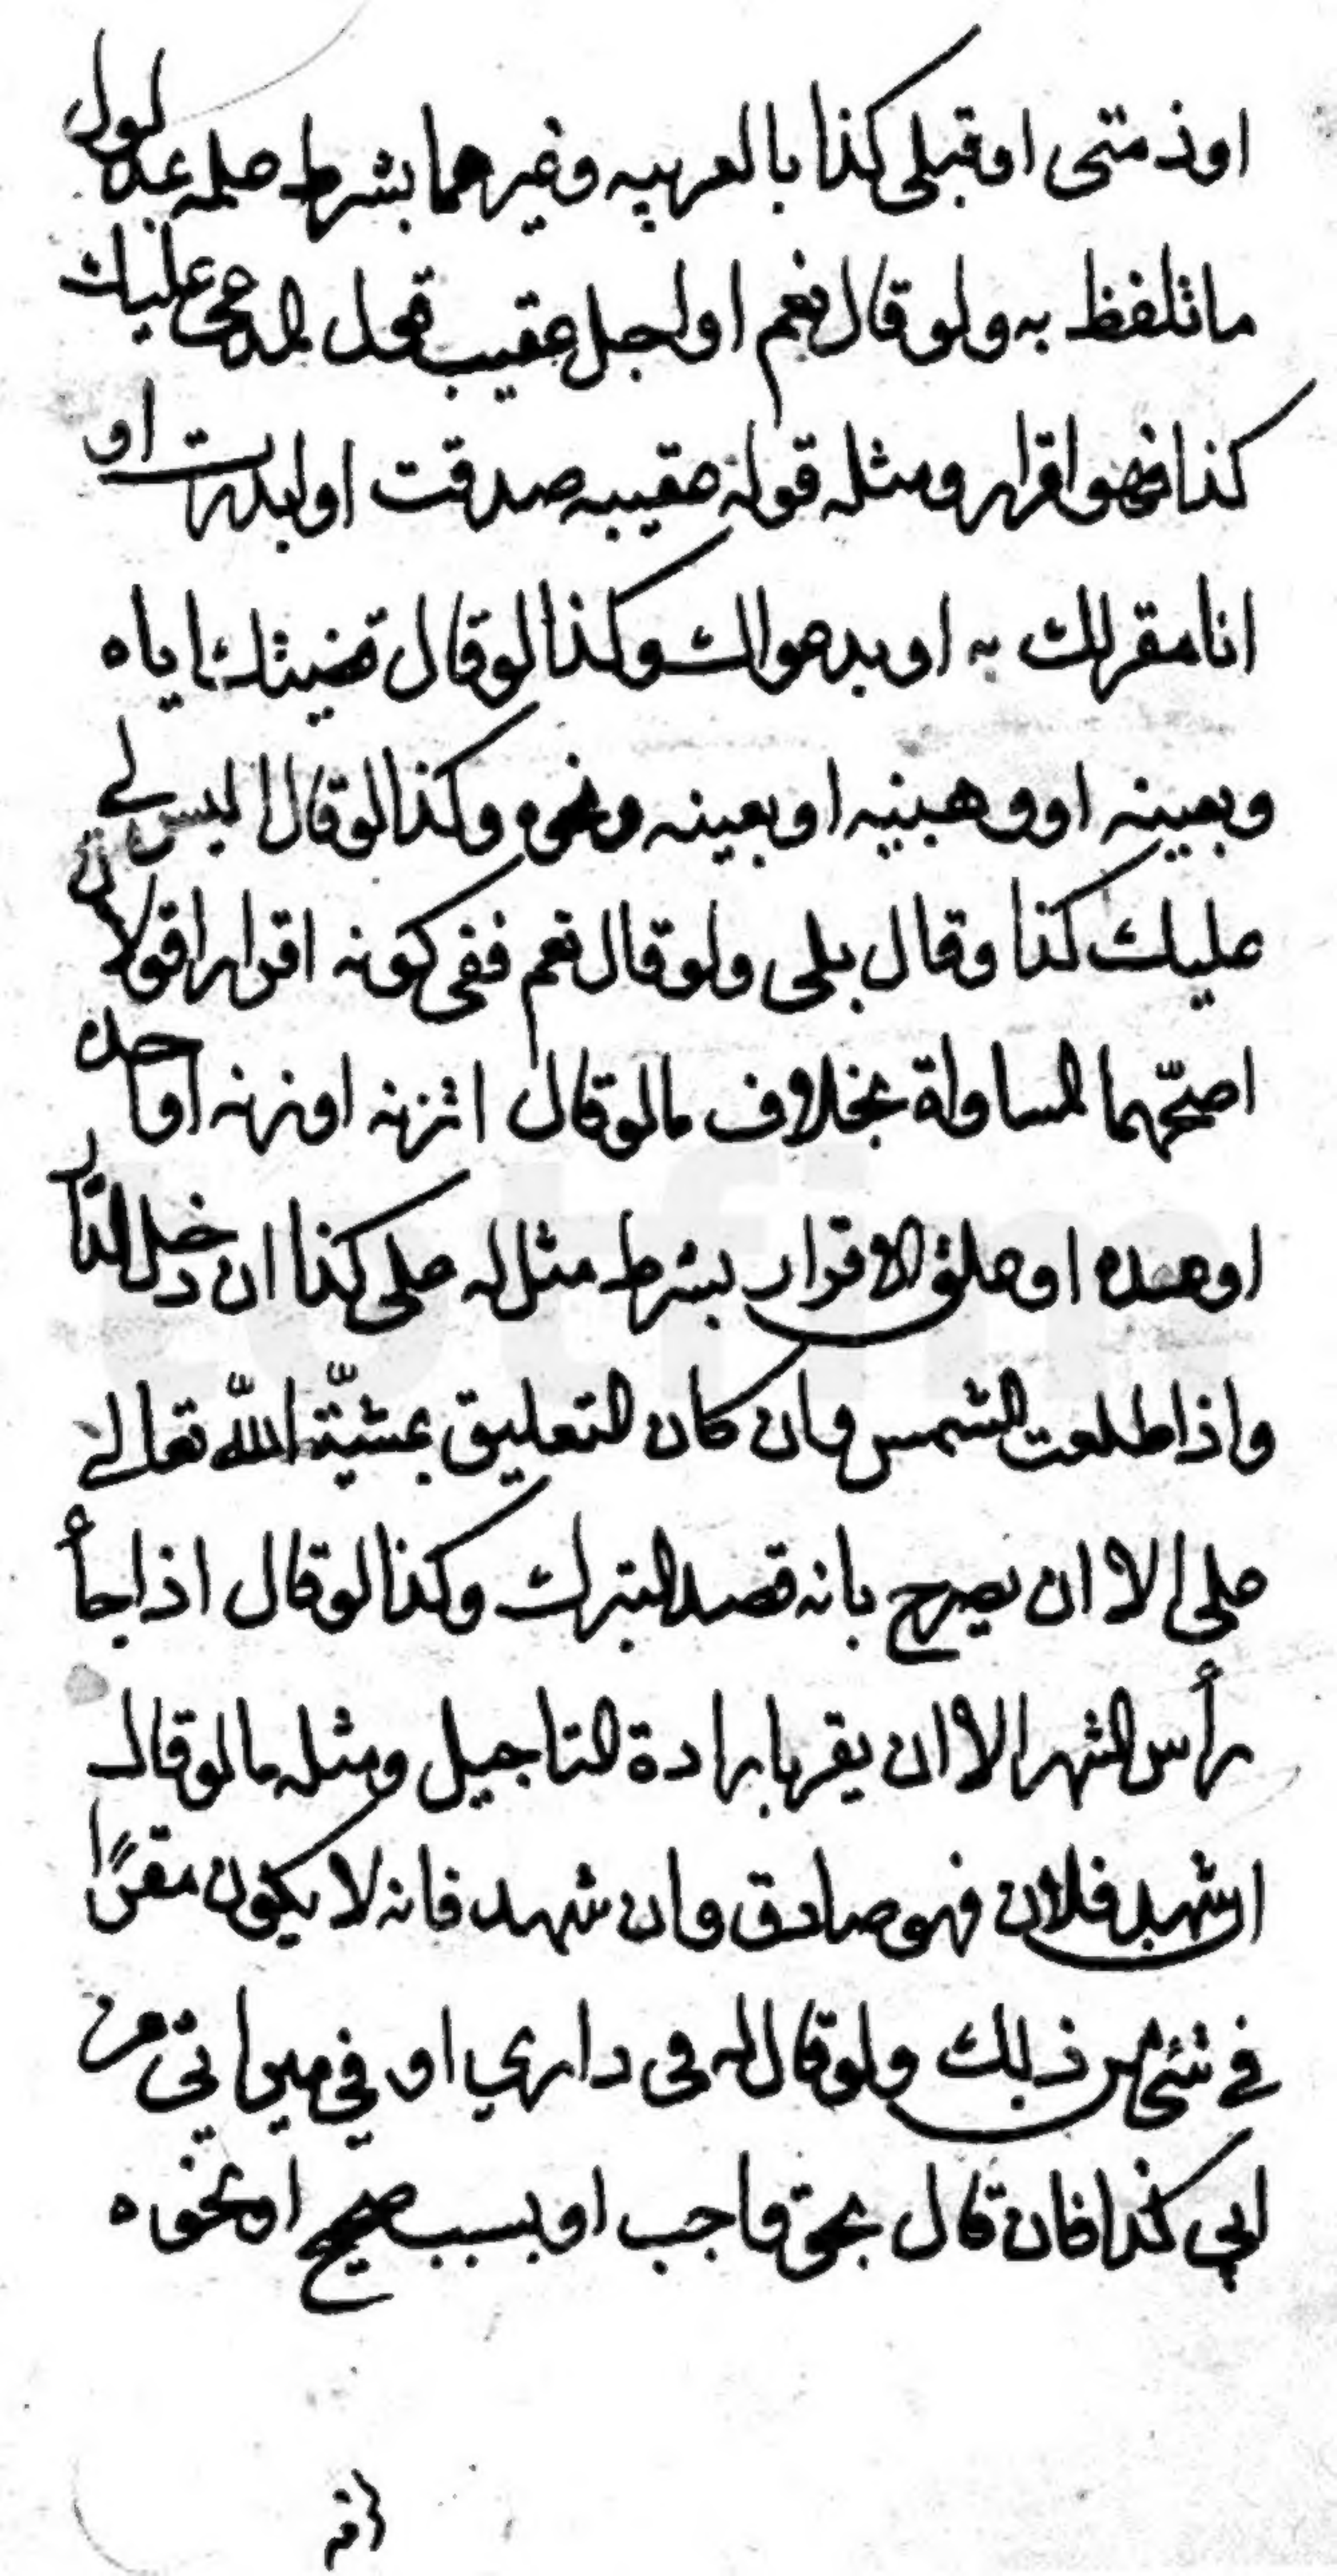 او ذمتى او قبلى كذا بالعربيه وغيرهما بشرط علمه بمدلول
ما تلفظ به ولو قال نعم او اجل عقيب قول المدعى لى عليك
كذا فهو اقرار ومثله قوله عقيبه صدقت او بررت او
انا مقر لك به او بدعواك وكذا لو قال قضيتك اياه
وبعينه او وهبنيه او بعينه ونحوه وكذا لو قال اليس لے
عليك كذا وقال بلى ولو قال نعم ففى كونه اقرارا قولان
اصحّهما المساواة بخلاف مالو قال اتزنه او زنه او احده
او هده او علق الاقرار بشرط مثل له على كذا ان دخل الدار
واذا طلعت الشمس وان كان التعليق بمشيّة اللّه تعالے
على الا ان يصرح بانه قصد التبرك وكذا لو قال اذا جأ
رأس الشهر الا ان يقر بارادة التاجيل ومثله مالو قال
ان شهد فلان فهو صادق وان شهد فانه لا يكون مقرًا
فے شئ من ذلك ولو قال له فى دارى او فى ميراثى من
ابى كذا فان قال بحق واجب او بسبب صحيح او نحوه